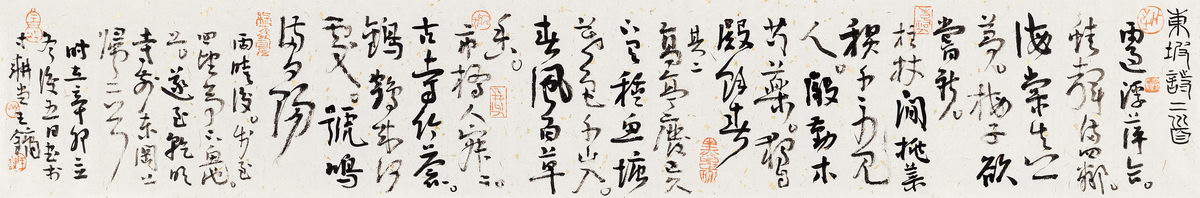 東坡詩二首
雨過浮萍合。
蛙聲滿四鄰。
海棠真一
夢。梅子欲
嘗新。
拄杖閒挑菜
秋千不見
人。殷勤木
芍藥。獨自
殿餘春
其二
高亭廢已久
下有種魚塘
暮色千山入。
春風百草
香。
市橋人寂二。
古寺竹蒼二。
鸛鶴來何
處。號鳴
滿夕陽
雨晴後。步至
四望亭下魚池
上。遂自乾明
寺前東岡上
歸二首
時在辛卯立
冬後五日書於
耕堂王鏞